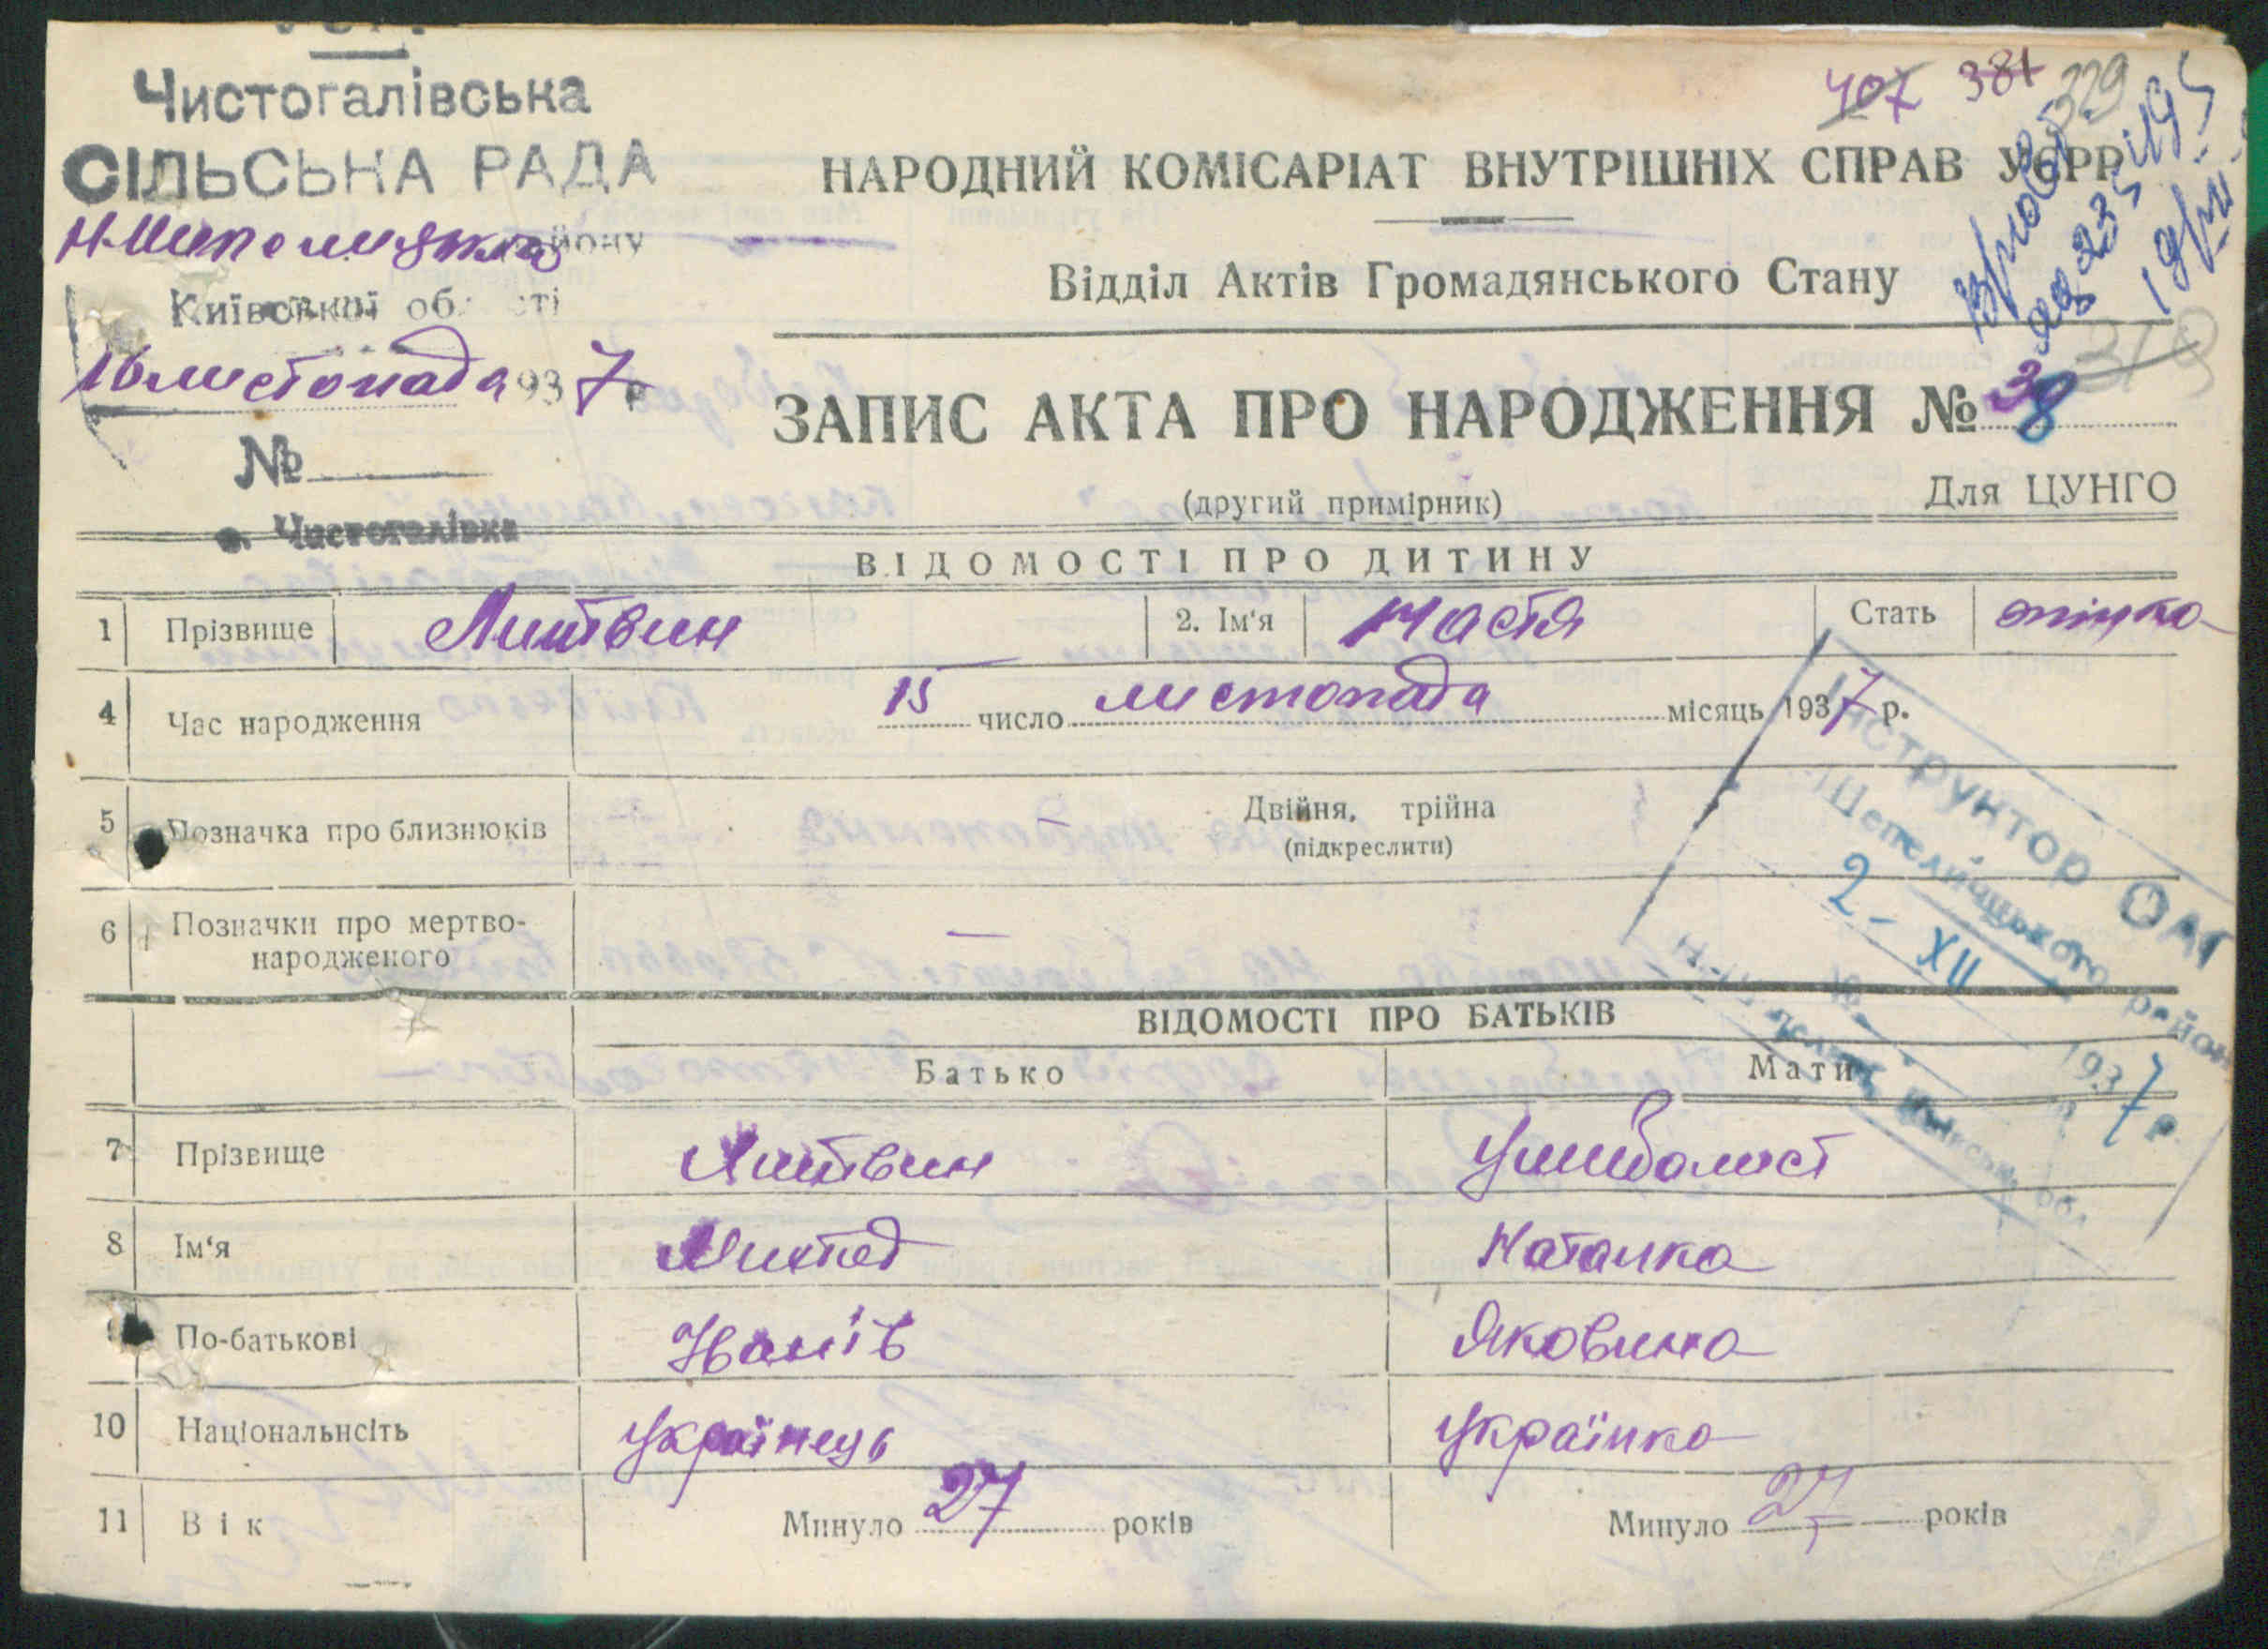 Чистогалівська
СІЛЬСЬКА РАДА
району
Київської області
16 листопада 1937 р
№
с. Чистогалівка
407 381 329
НАРОДНИЙ КОМІСАРІАТ ВНУТРІШНІХ СПРАВ УСРР
Відділ Актів Громадянського Стану
319
ЗАПИС АКТА ПРО НАРОДЖЕННЯ № 38
(другий примірник) Для ЦУНГО
ВІДОМОСТІ ПРО ДИТИНУ
1 Прізвище Литвин 2. Ім'я Настя Стать жінка
4 Час народження 15 число листопада місяць 1937 р.
5 Позначка про близнюків Двійня, трійна
(підкреслити)
6 Позначки про мертво-
народженого —
Інструктор ОАГ
Шепелицького район
2 - XII 1937 р
ВІДОМОСТІ ПРО БАТЬКІВ
Батько Мати
7 Прізвище Литвин
8 Ім'я Наталка
9 По-батькові Іванів Яковина
10 Національнсіть українець українка
11 Вік Минуло 27 років Минуло 27 років